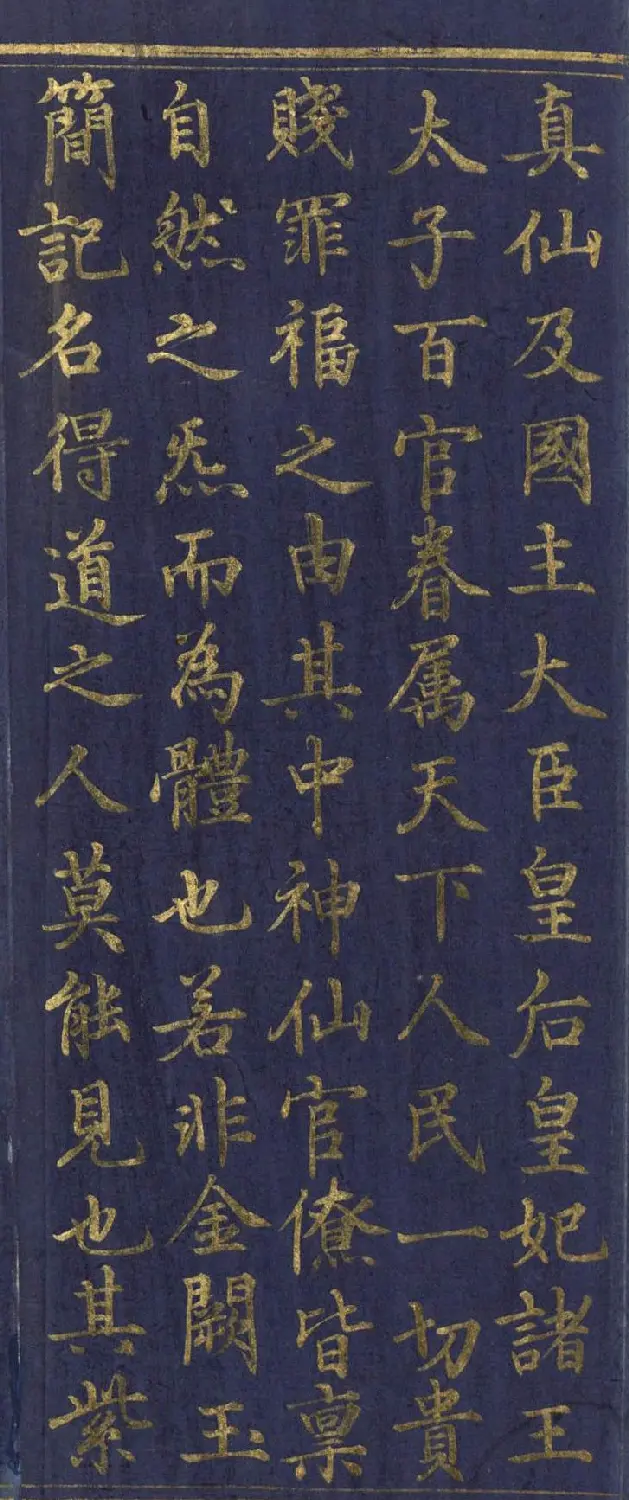 真仙及國主大臣皇后皇妃諸王
太子百官眷属天下人民一切貴
賤罪福之由其中神仙官僚皆稟
自然之炁而為體也若非金闕玉
簡記名得道之人莫能見也其紫